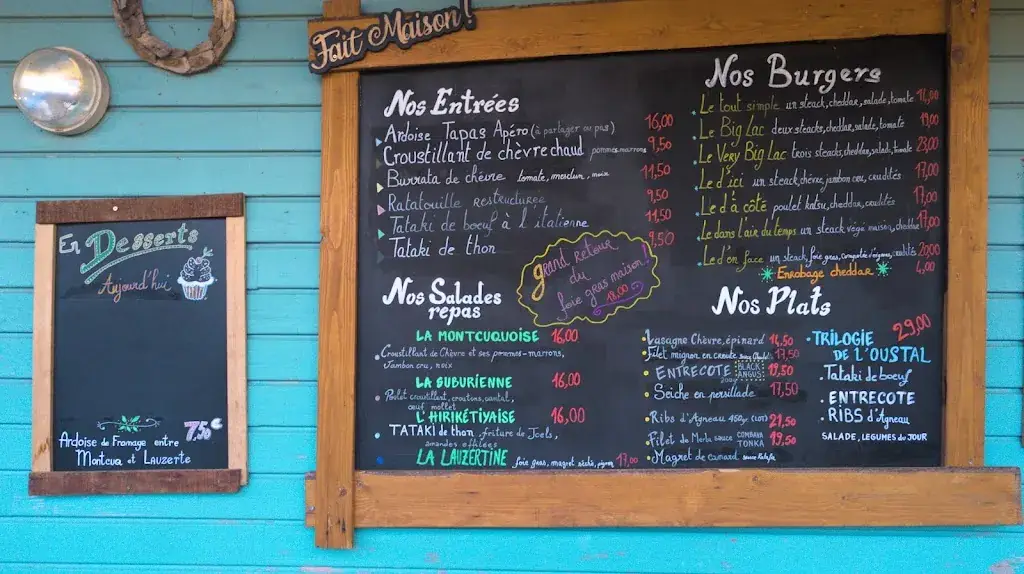 Fait Maison!
En Desserts
Aujourd'hui
Ardoise de Fromage entre 7,50€
Montcuq et Lauzerte
Nos Entrées
Ardoise Tapas Apéro (à partager ou pas) 16,00
Croustillant de chèvre chaud pommes, marrons 9,50
Burrata de chèvre tomate, mesclun, noix 11,50
Ratatouille restructurée 9,50
Tataki de boeuf à l'italienne 11,50
Tataki de thon 9,50
grand retour
du
foie gras maison!
18,00
Nos Salades
repas
LA MONTCUQUOISE 16,00
Croustillant de Chèvre et ses pommes-marrons,
Jambon cru, noix
LA BUBURIENNE 16,00
Poulet croustillant, croutons, cantal,
oeuf mollet
L'HIRIKÉTIYAISE 16,00
TATAKI de thon, friture de Joels,
amandes effilées
LA LAUZERTINE foie gras, magret séché, pignon 17,00
Nos Burgers
Le tout simple un steack, cheddar, salade, tomate
Le Big Lac deux steacks, cheddar, salade, tomate 19,00
Le Very Big Lac trois steacks, cheddar, salade, tomate 23,00
Le d'ici un steack, chèvre, jambon cru, crudités 17,00
Le d'à côté poulet katsu, cheddar, crudités 17,00
Le dans l'air du temps un steack végé maison, cheddar 17,00
Le d'en face un steack, foie gras, compotée d'oignons, crudités 20,00
Enrobage cheddar 4,00
Nos Plats
Lasagne Chèvre, épinard 14,50
Filet mignon en croute 17,50
ENTRECOTE BLACK ANGUS
Seiche en persillade 17,50
Ribs d'Agneau 450gr 21,50
Filet de Merlu sauce COMBAVA TONKA 19,50
Magret de canard sauce
TRILOGIE 29,00
DE L'OUSTAL
Tataki de boeuf
ENTRECOTE
RIBS d'Agneau
SALADE, LEGUMES du JOUR